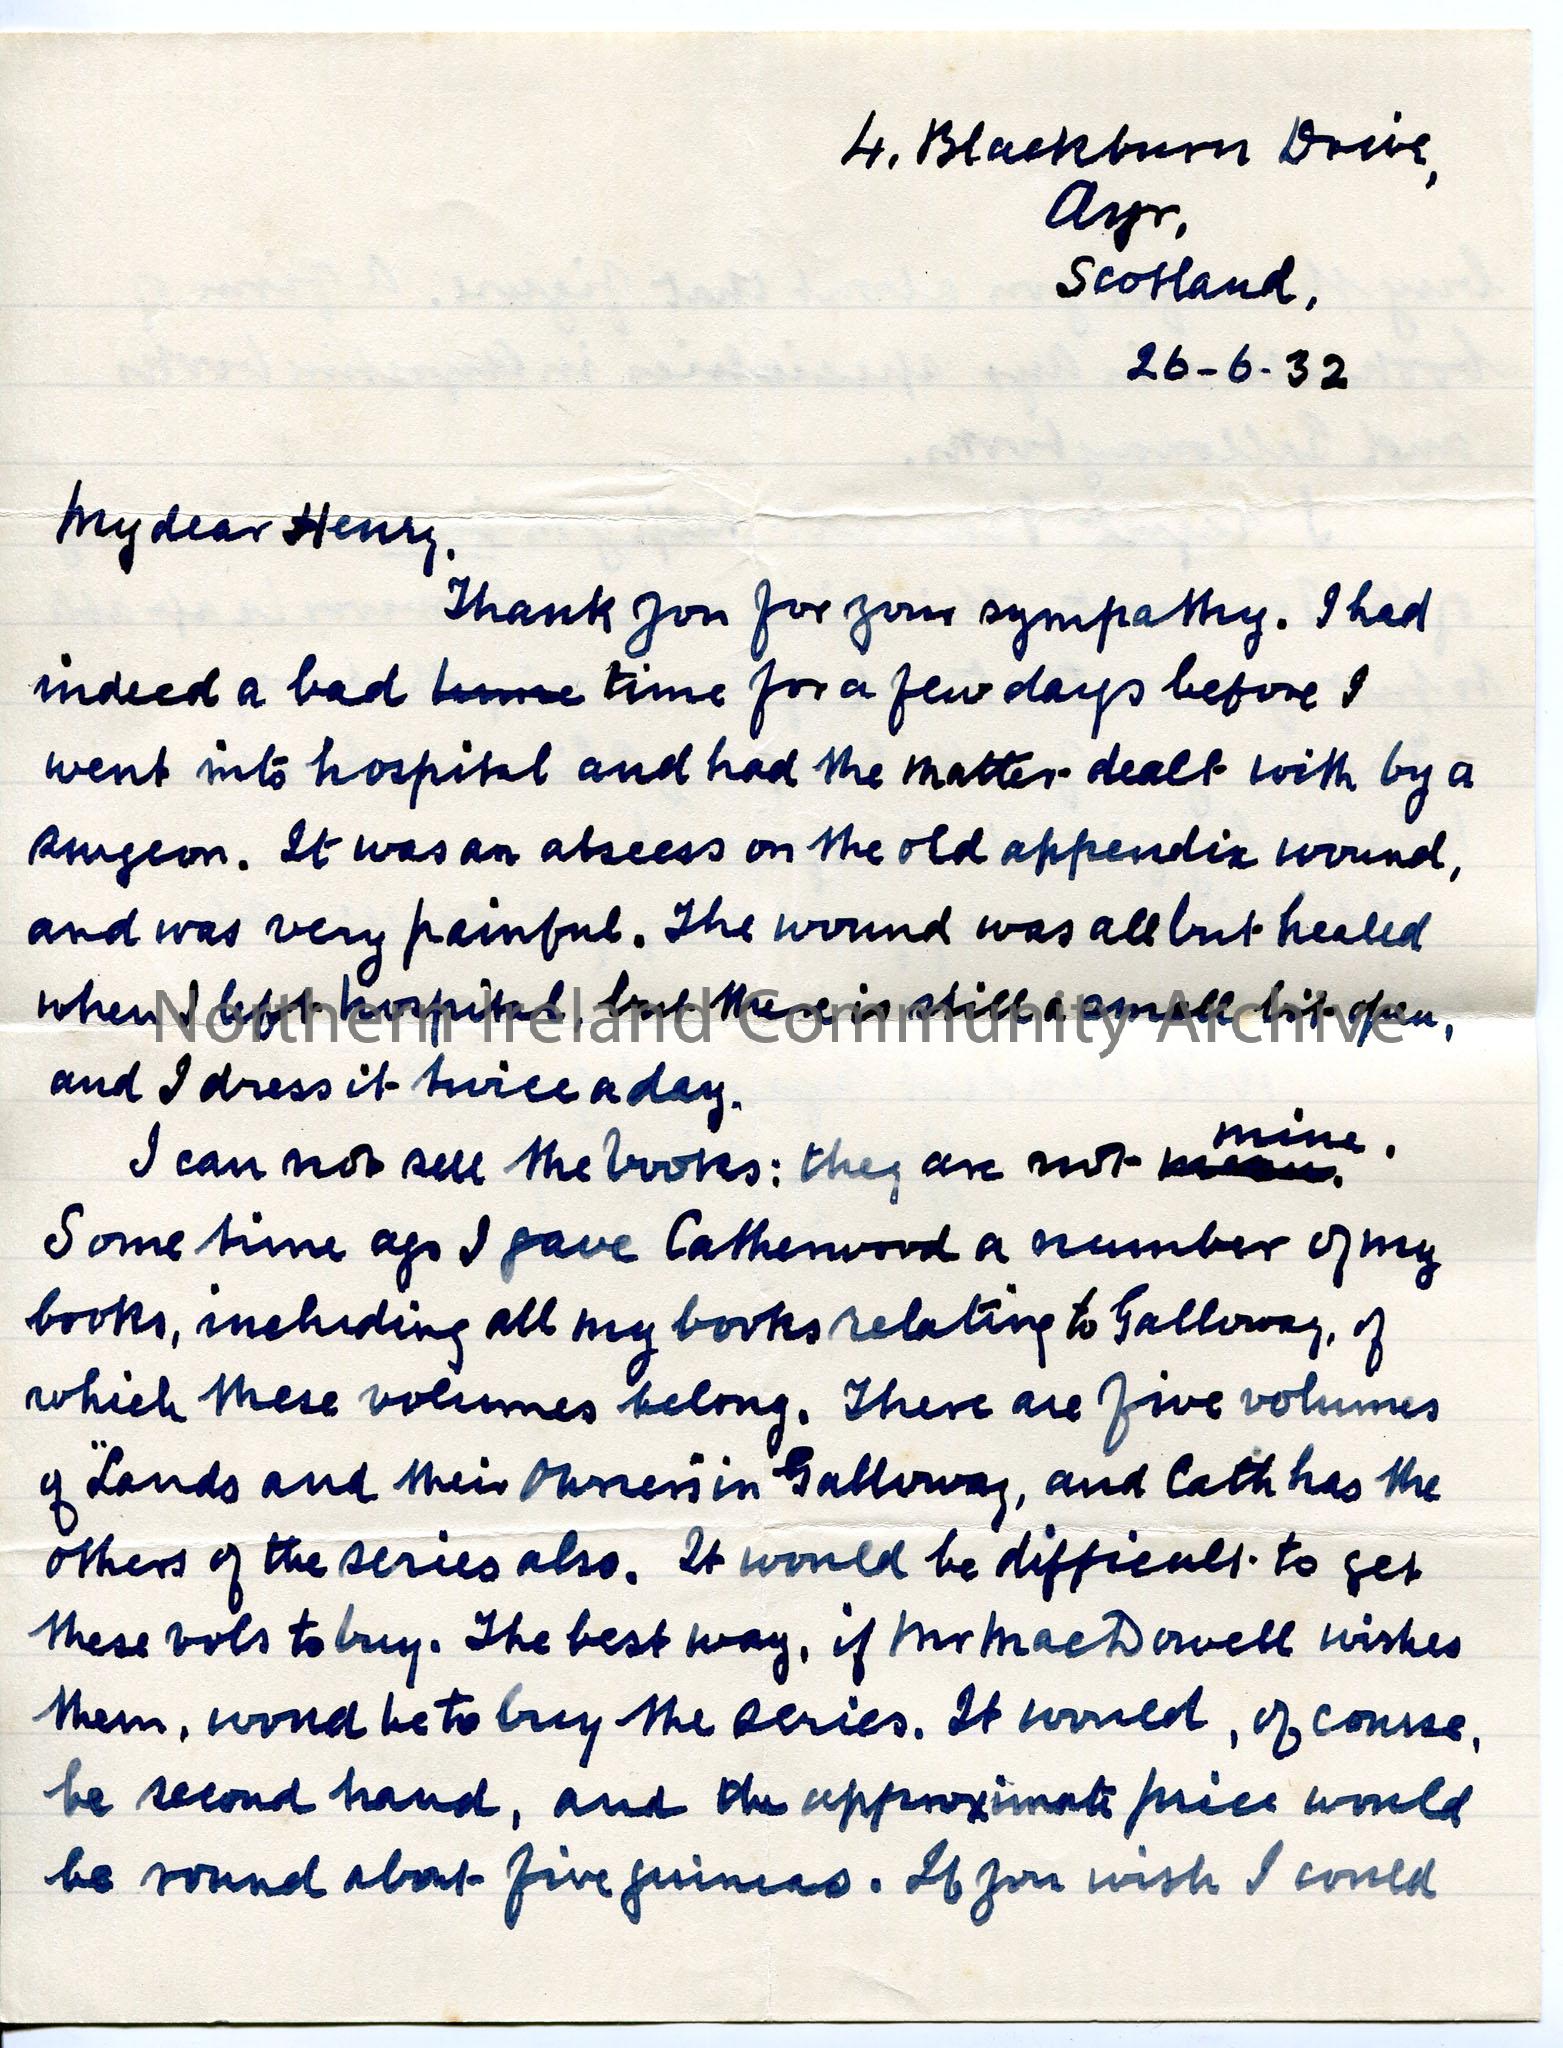 4. Blackburn Drive,
Ayr,
Scotland,
26-6-32
My dear Henry.
Thank you for your sympathy. I had
indeed a bad time for a few days before I
went into hospital and had the matter dealt with by a
surgeon. It was an abscess on the old appendix wound,
and was very painful. The wound was all but healed
when I left hospital, but there is still a small bit open,
Northern Ireland Community Archive
and I dress it twice a day.
I can not sell the books: they are not mine.
Some time ago I gave Catherwood a number of my
books, including all my books relating to Galloway, of
which these volumes belong. There are five volumes
of "Lands and their Owners" in Galloway, and Cath has the
others of the series also. It would be difficult to get
these vols to buy. The best way, if Mr MacDowell wishes
them, would be to buy the series. It would, of course,
be second hand, and the approximate price would
be round about five guineas. If you wish I could